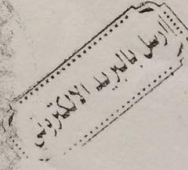 ارسل بالبريد الالكتروني